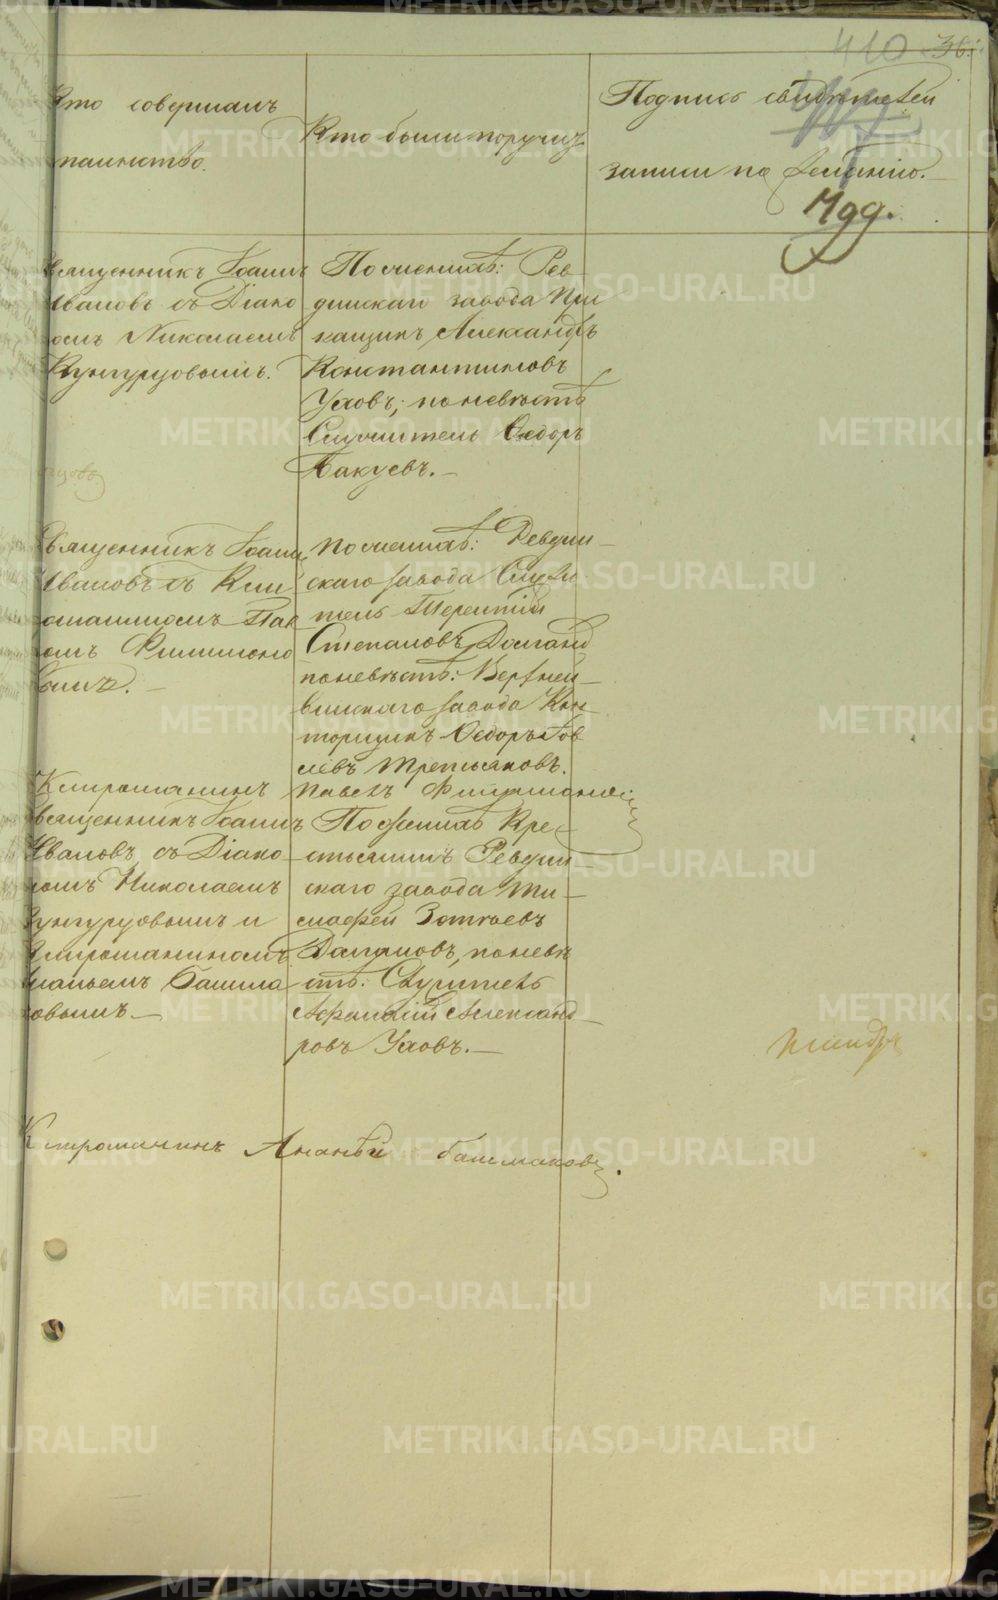 410
36.
Кто совершалъ
таинство.
Кто были поручит.
Подпись свидѣтелей
записи по желанію.
Священникъ Іоаннъ
Ивановъ съ Діако
омъ Николаемъ
Кунгурцовымъ.
По женихѣ: Рев
динскаго завода При
кащикъ Александръ
Константиновъ
Уховъ; по невѣстѣ
Служитель Ѳедоръ
Священникъ Іоаннъ
Ивановъ съ Кли
омъ Филимоно
вымъ.
По женихѣ: Ревдин
скаго завода Служи
тель Терентій
Степановъ
по невѣстѣ: Верхней
винскаго завода Кон
торщикъ Ѳедоръ Яков
левъ Третьяковъ.
Клирошанинъ Павелъ
Священникъ Іоаннъ
Ивановъ, съ Діако
номъ Николаемъ
Кунгурцовымъ и
Клирошаниномъ
Башма
ковымъ.
По женихѣ Кре
стьянинъ Ревдин
скаго завода Ти
мофей Зотеевъ
по невѣ
стѣ: Служитель
Александ
ровъ Уховъ.
Клирошанинъ Ананьій Башмаковъ.
METRIKI.GASO-URAL.RU